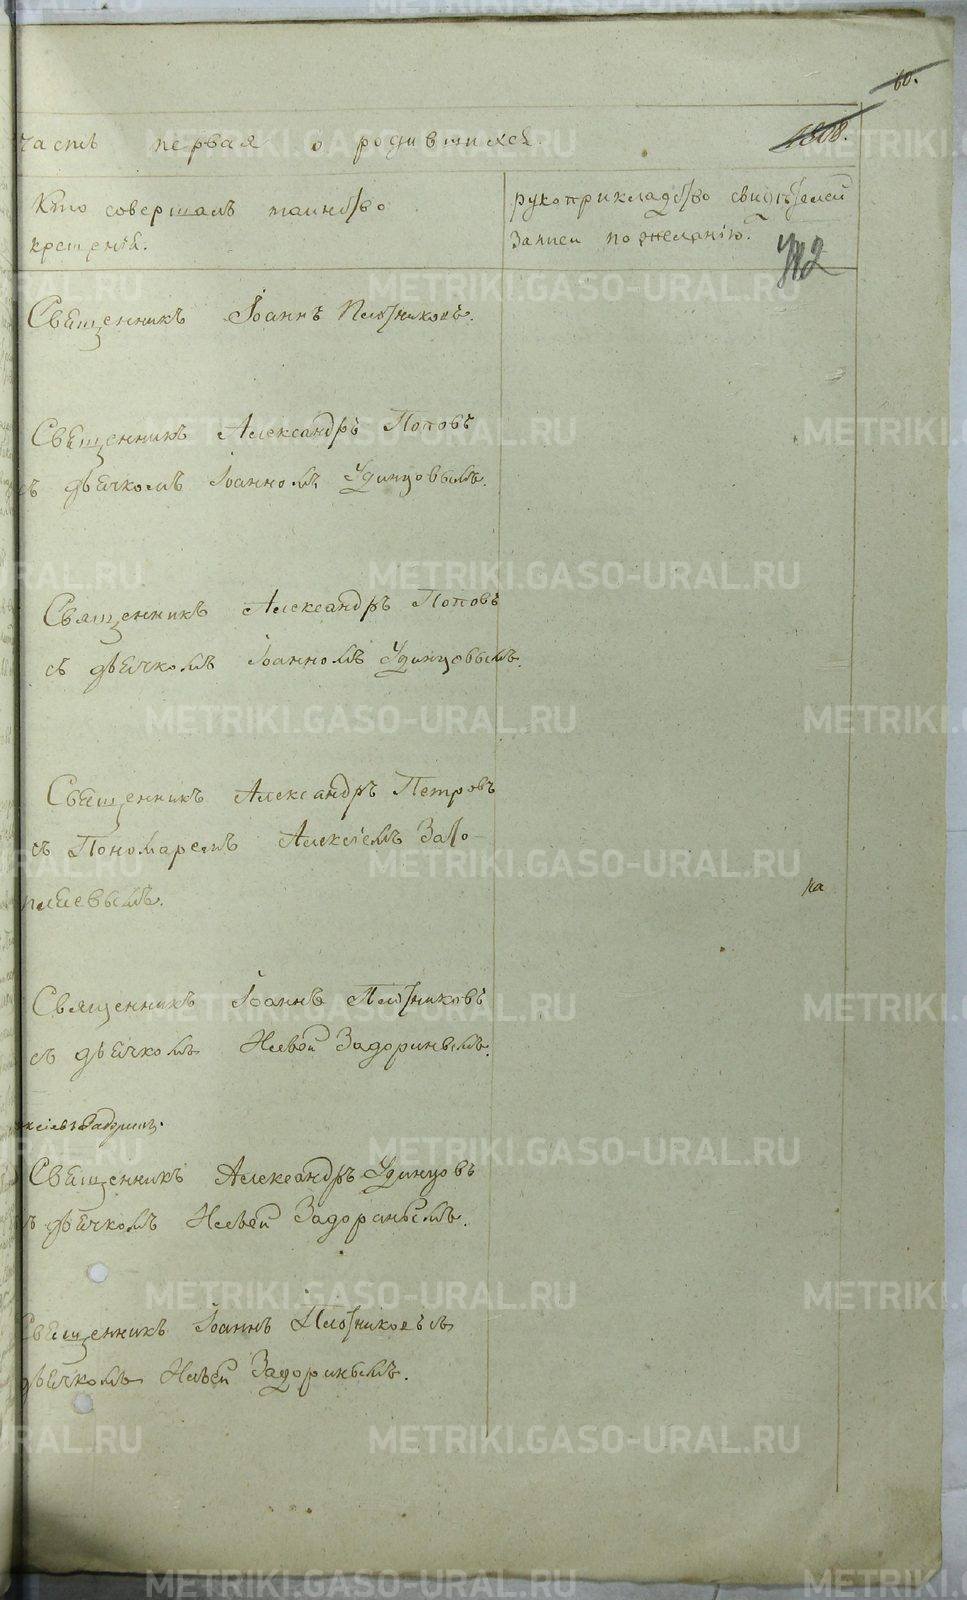 60.
1808.
часть первая о родившихся.
Кто совершалъ таинство
крещенія.
рукоприкладство свидѣтелей
записи по желанію.
Священникъ Іоаннъ Плотниковъ.
Священникъ Александръ Поповъ
съ дьячкомъ Іоанномъ Удинцовымъ.
Священникъ Александръ Поповъ
съ дьячкомъ Іоанномъ Удинцовымъ.
Священникъ Александръ Петровъ
съ Пономаремъ Алексіемъ
Священникъ Іоаннъ Плотниковъ
съ дьячкомъ Иліей Задоринымъ.
Священникъ Александръ Удинцовъ
съ дьячкомъ Иліей Задоринымъ.
Священникъ Іоаннъ Плотниковъ съ
дьячкомъ Иліей Задоринымъ.
METRIKI.GASO-URAL.RU